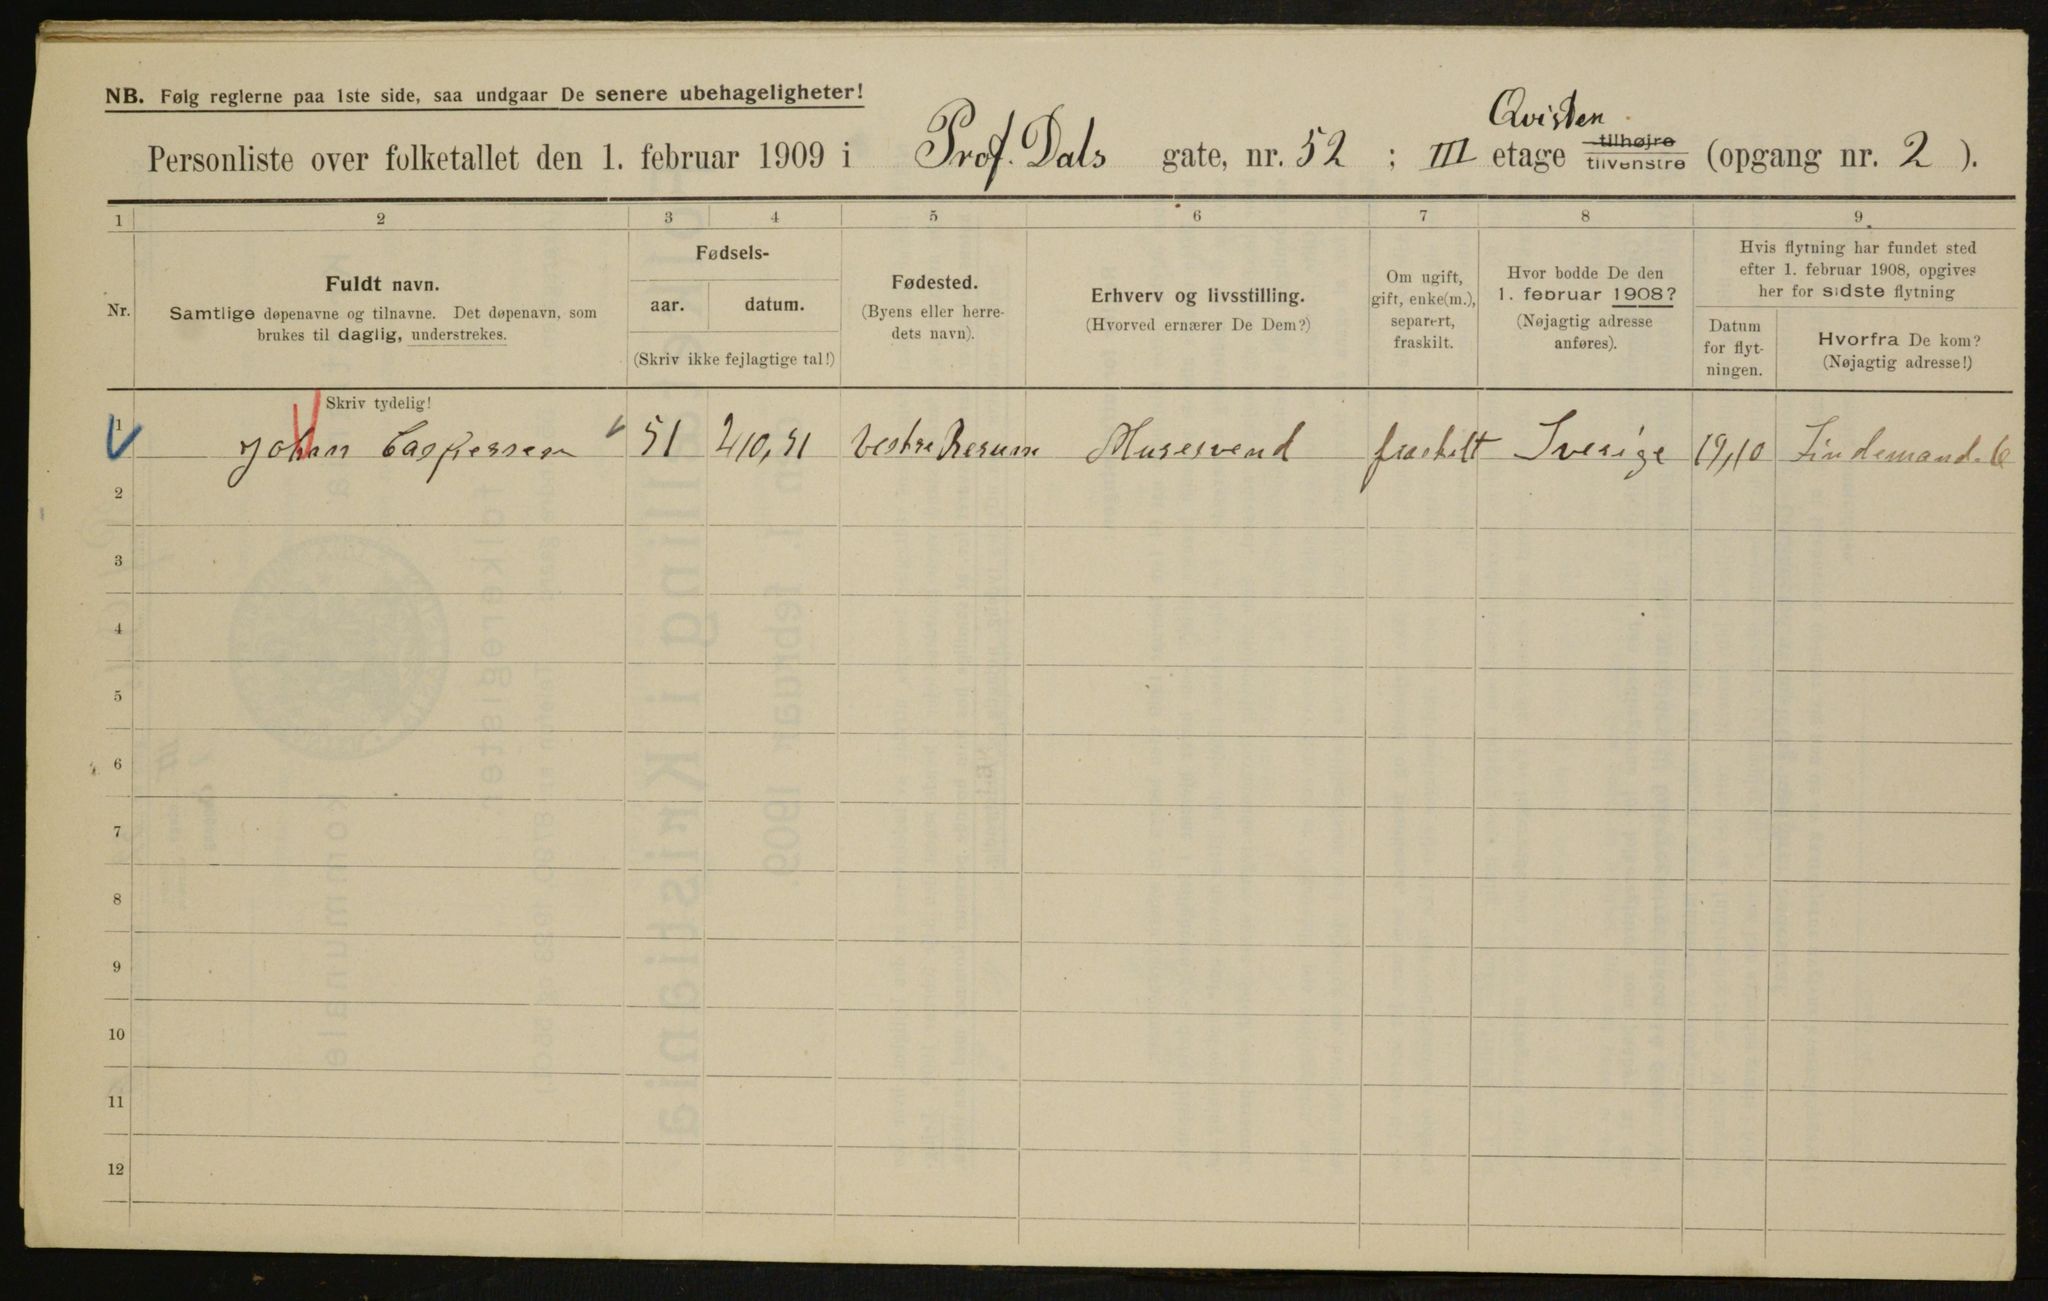 NB. Følg reglerne paa 1ste side, saa undgaar De senere ubehageligheter!
Qvisten
Personliste over folketallet den 1. februar 1909 i Prof. Dals gate, nr. 52 ; III etage tilhøjre tilvenstre (opgang nr. 2 ).
1 2 3 4 5 6 7 8 9
Nr.
Fuldt navn.
Samtlige døpenavne og tilnavne. Det døpenavn, som
brukes til daglig, understrekes.
Fødsels-
aar. datum.
(Skriv ikke fejlagtige tal!)
Fødested.
(Byens eller herre-
dets navn).
Erhverv og livsstilling.
(Hvorved ernærer De Dem?)
Om ugift,
gift, enke(m.),
separert,
fraskilt.
Hvor bodde De den
1. februar 1908?
(Nøjagtig adresse
anføres).
Hvis flytning har fundet sted
efter 1. februar 1908, opgives
her for sidste flytning
Datum
for flyt-
ningen.
Hvorfra De kom?
(Nøjagtig adresse!)
Skriv tydelig!
1 Johan Caspersen 51 Vestre Murersvend fraskilt Sverige 19,10
2
3
4
5
6
7
8
9
10
11
12